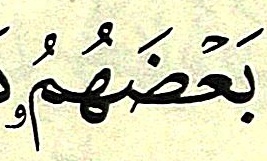 بَعۡضَهُمُۥ